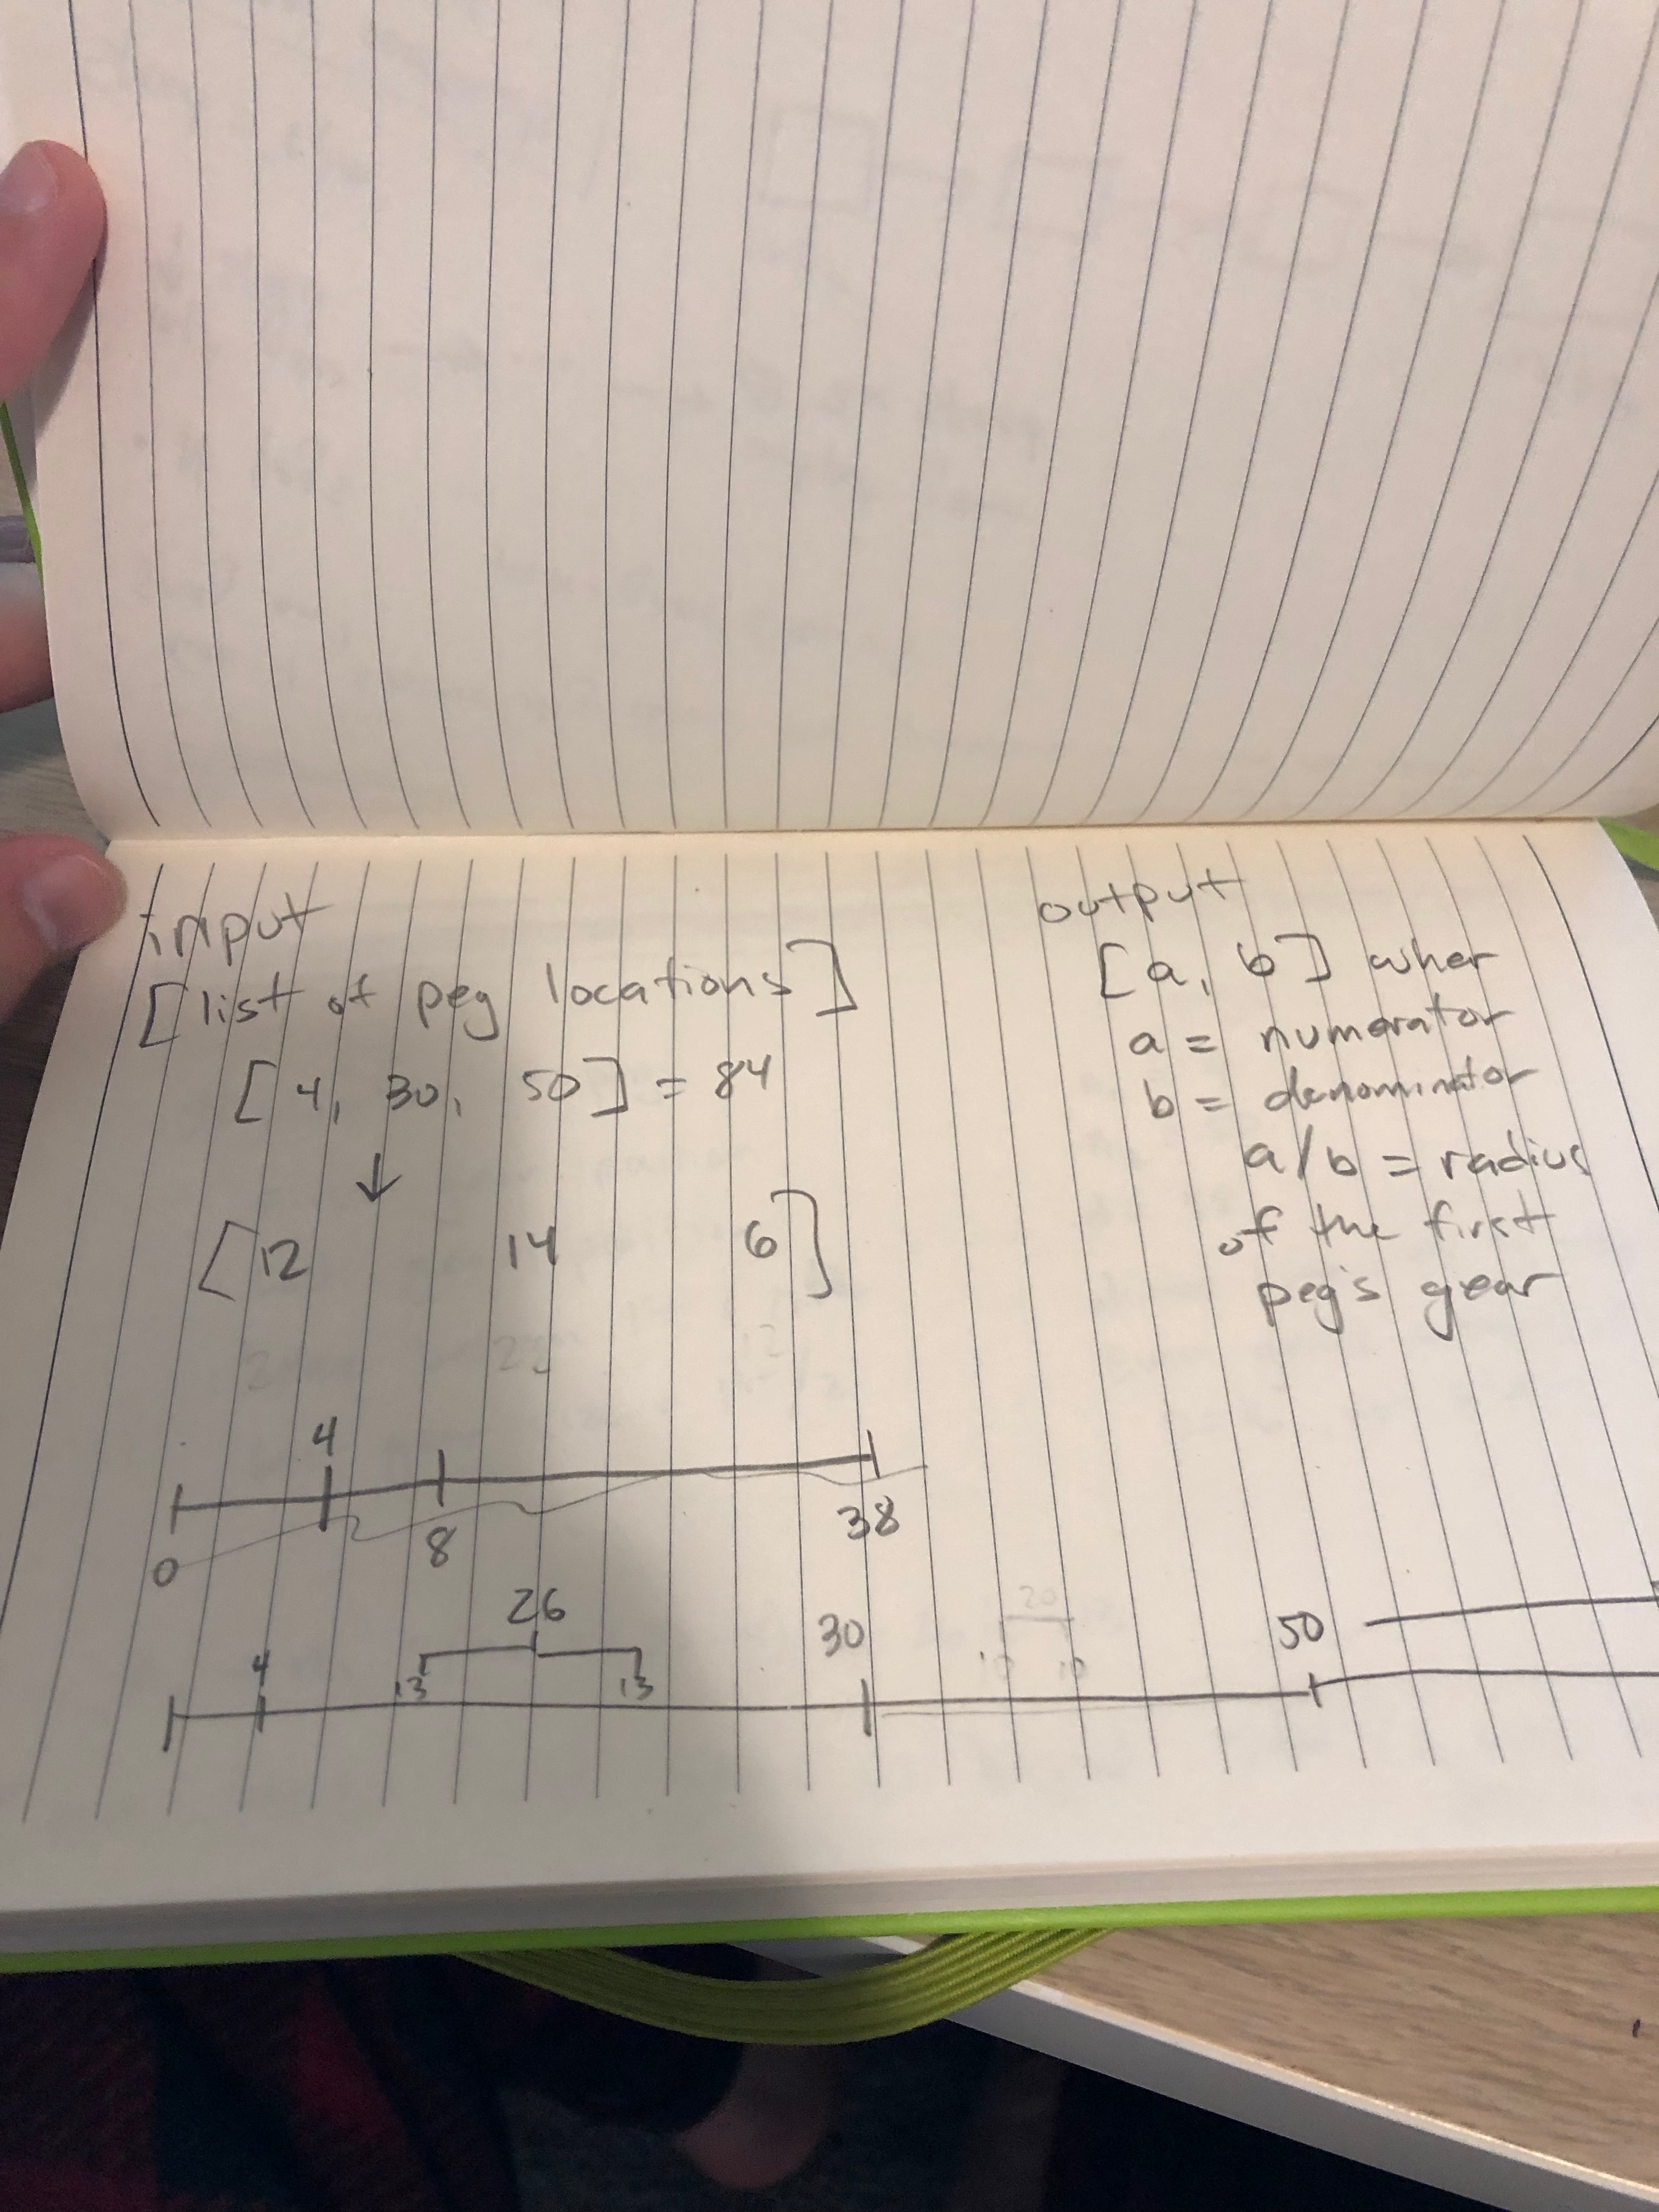 input
[list of peg locations]
[4, 30, 50] = 84
↓
[12 14 6]
output
[a, b] wher
a = numerator
b = denominator
a/b = radius
of the first
peg's gear
4
0 8 38
26
13 13
4 30 50
20
10 10